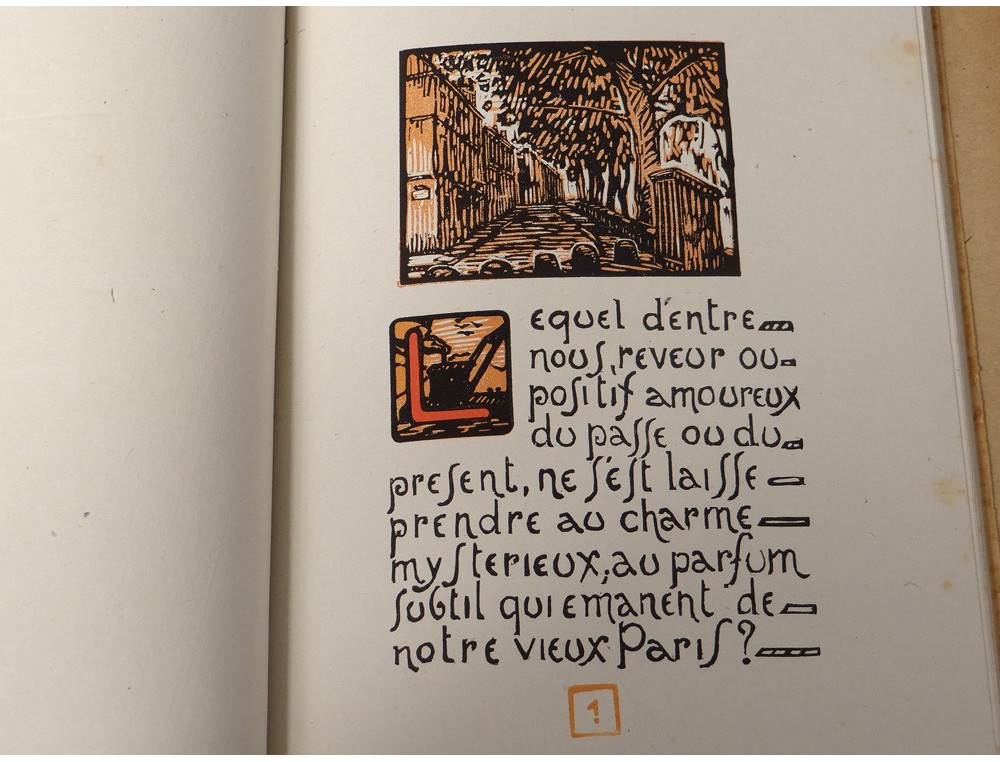 Lequel d'entre
nous, reveur ou
positif amoureux
du passe ou du
present, ne s'est laisse
prendre au charme
mysterieux, au parfum
subtil qui emanent de
notre vieux Paris?
1